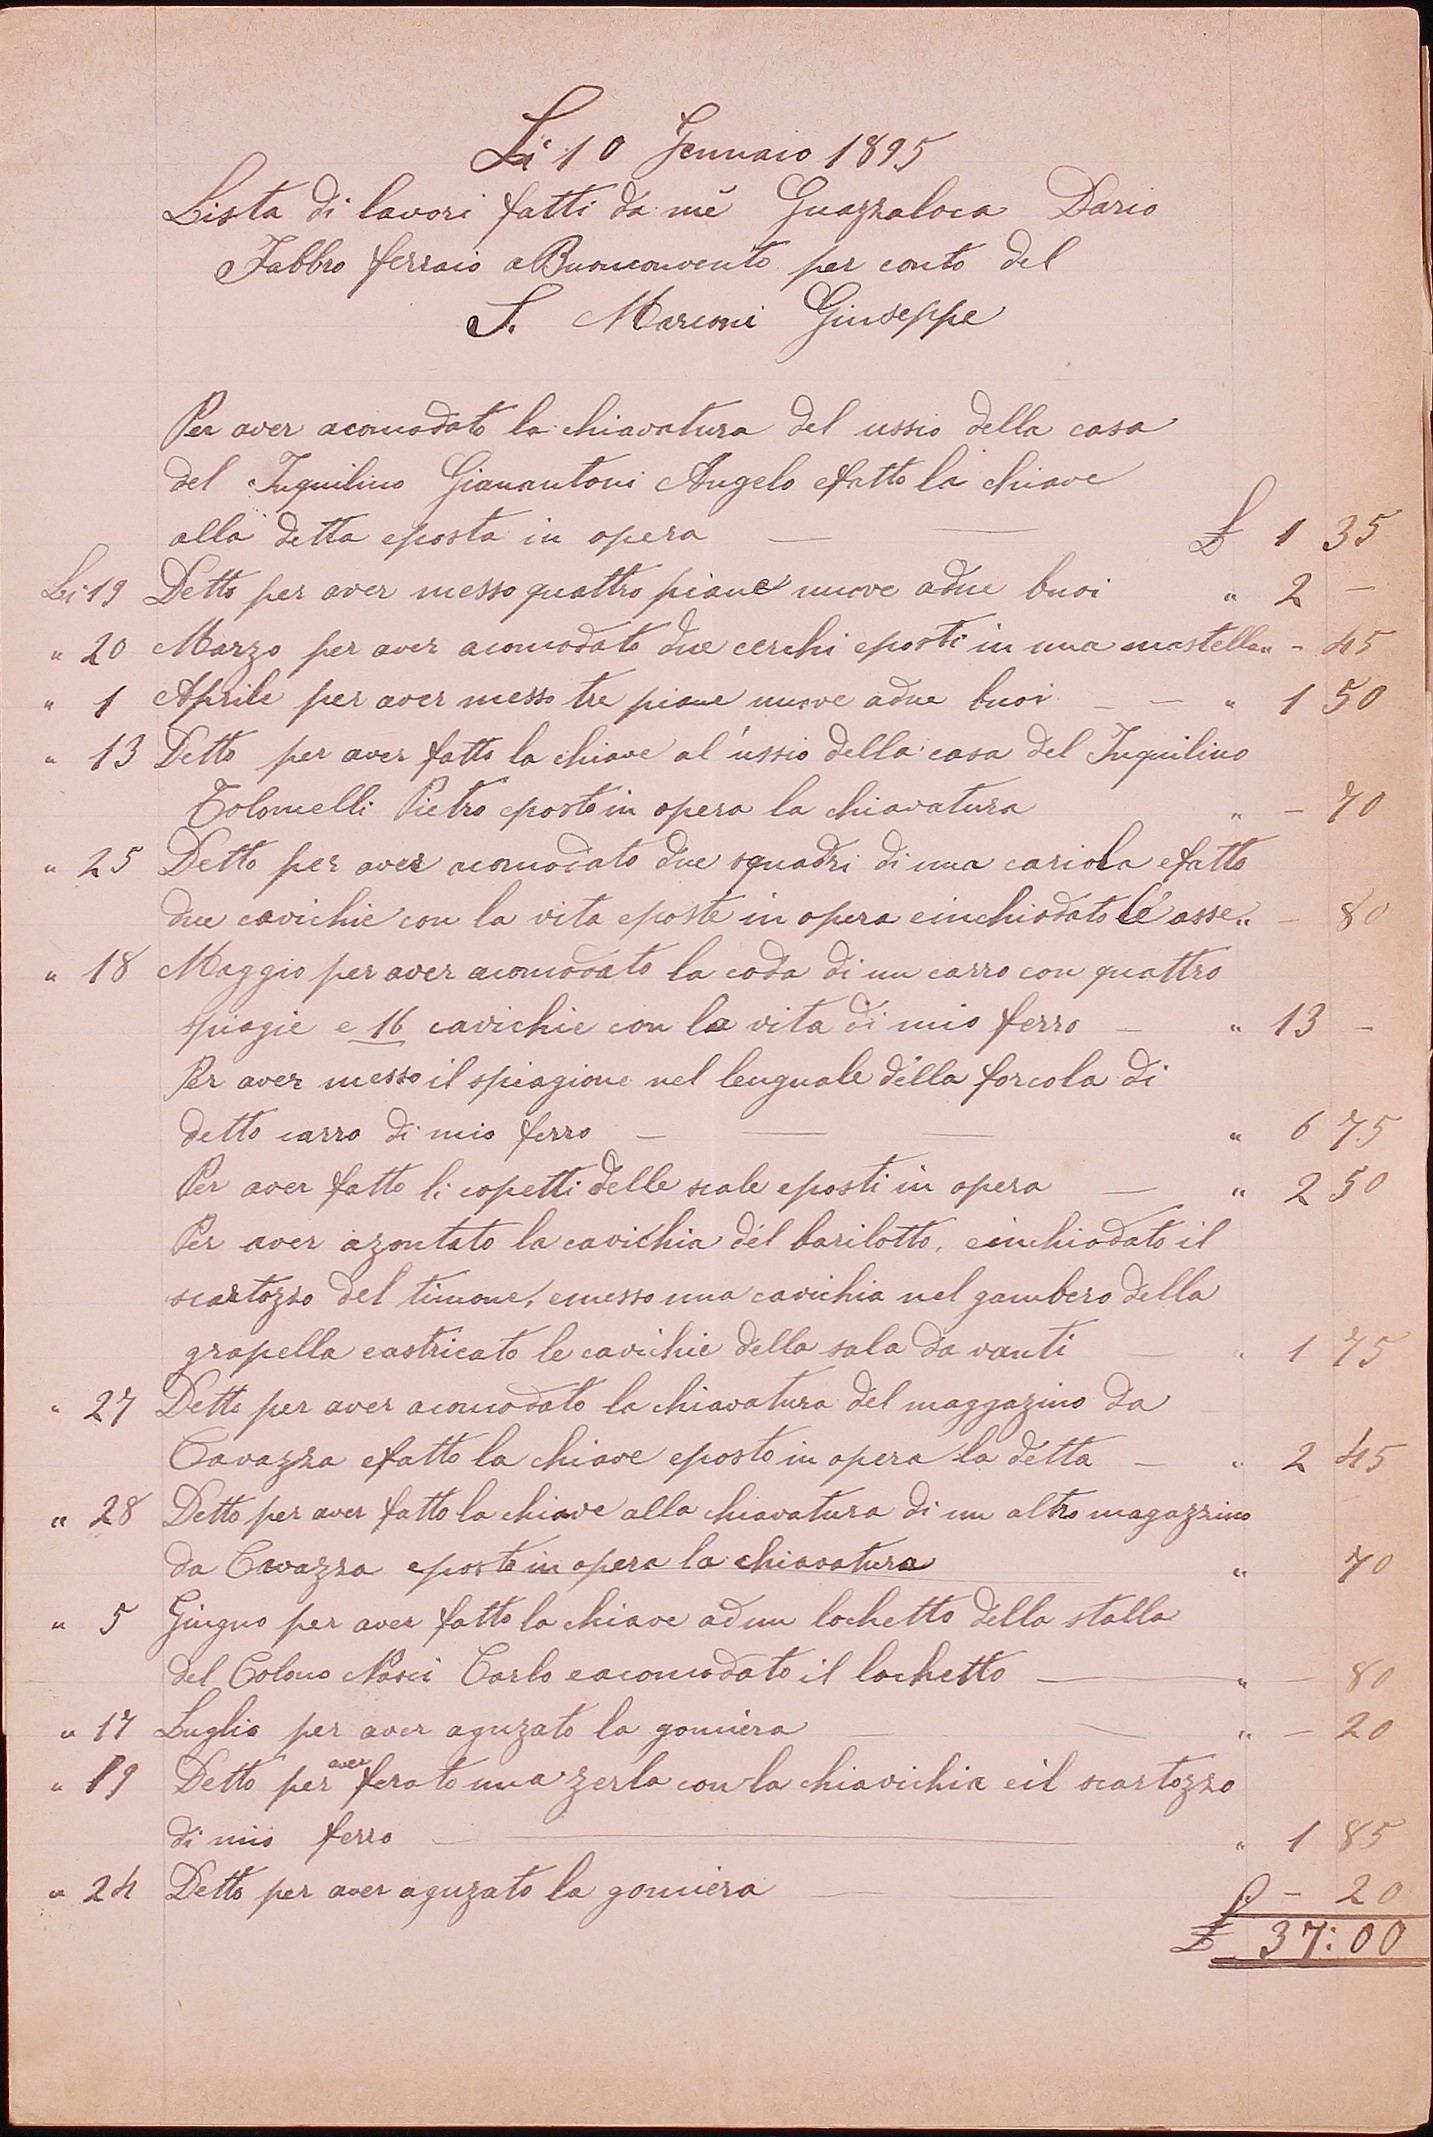 Li 10 Gennaio 1895
Lista di lavori fatti da mè Guazzaloca Dario
Fabbro ferraio a Buonconvento per conto del
S. Marconi Giuseppe
Per aver acomodato la chiavatura del ussio della casa
del Inquilino Gianantoni Angelo efatto la chiave
alla detta eposta in opera — — £ 1 35
Li 19 Detto per aver messo quattro piane nuove adue buoi " 2 —
" 20 Marzo per aver acomodato due cerchi eposti in una mastella " - 45
" 1 Aprile per aver messo tre piane nuove adue buoi — — " 1 50
" 13 Detto per aver fatto la chiave al'ussio della casa del Inquilino
Tolomelli Pietro eposto in opera la chiavatura " - 70
" 25 Detto per aver acomodato due squadri di una cariola efatto
due cavichie con la vita eposte in opera einchiodato le asse " - 80
" 18 Maggio per aver acomodato la coda di un carro con quattro
spiagie e 16 cavichie con la vita di mio ferro — " 13 -
Per aver messo il spiagione nel lenguale della forcola di
detto carro di mio ferro — — — " 6 75
Per aver fatto li copetti delle scale eposti in opera — " 2 50
Per aver azontato la cavichia del barilotto, einchiodato il
scartozzo del timone, emesso una cavichia nel gambero della
grapella eastricato le cavichie della sala da vanti — " 1 75
" 27 Detto per aver acomodato la chiavatura del maggazino da
Cavazza efatto la chiave eposto in opera la detta — " 2 45
" 28 Detto per aver fatto la chiave alla chiavatura di un altro magazzino
da Cavazza eposto in opera la chiavatura " 70
" 5 Giugno per aver fatto la chiave ad un lochetto della stalla
del Colono Nasci Carlo eacomodato il lochetto — " - 80
" 17 Luglio per aver aguzato la gomiera — — " - 20
" 19 Detto per aver ferato una zerla con la chiavichia eil scartozzo
di mio ferro — " 1 85
" 24 Detto per aver aguzato la gomiera — — " - 20
£ 37:00